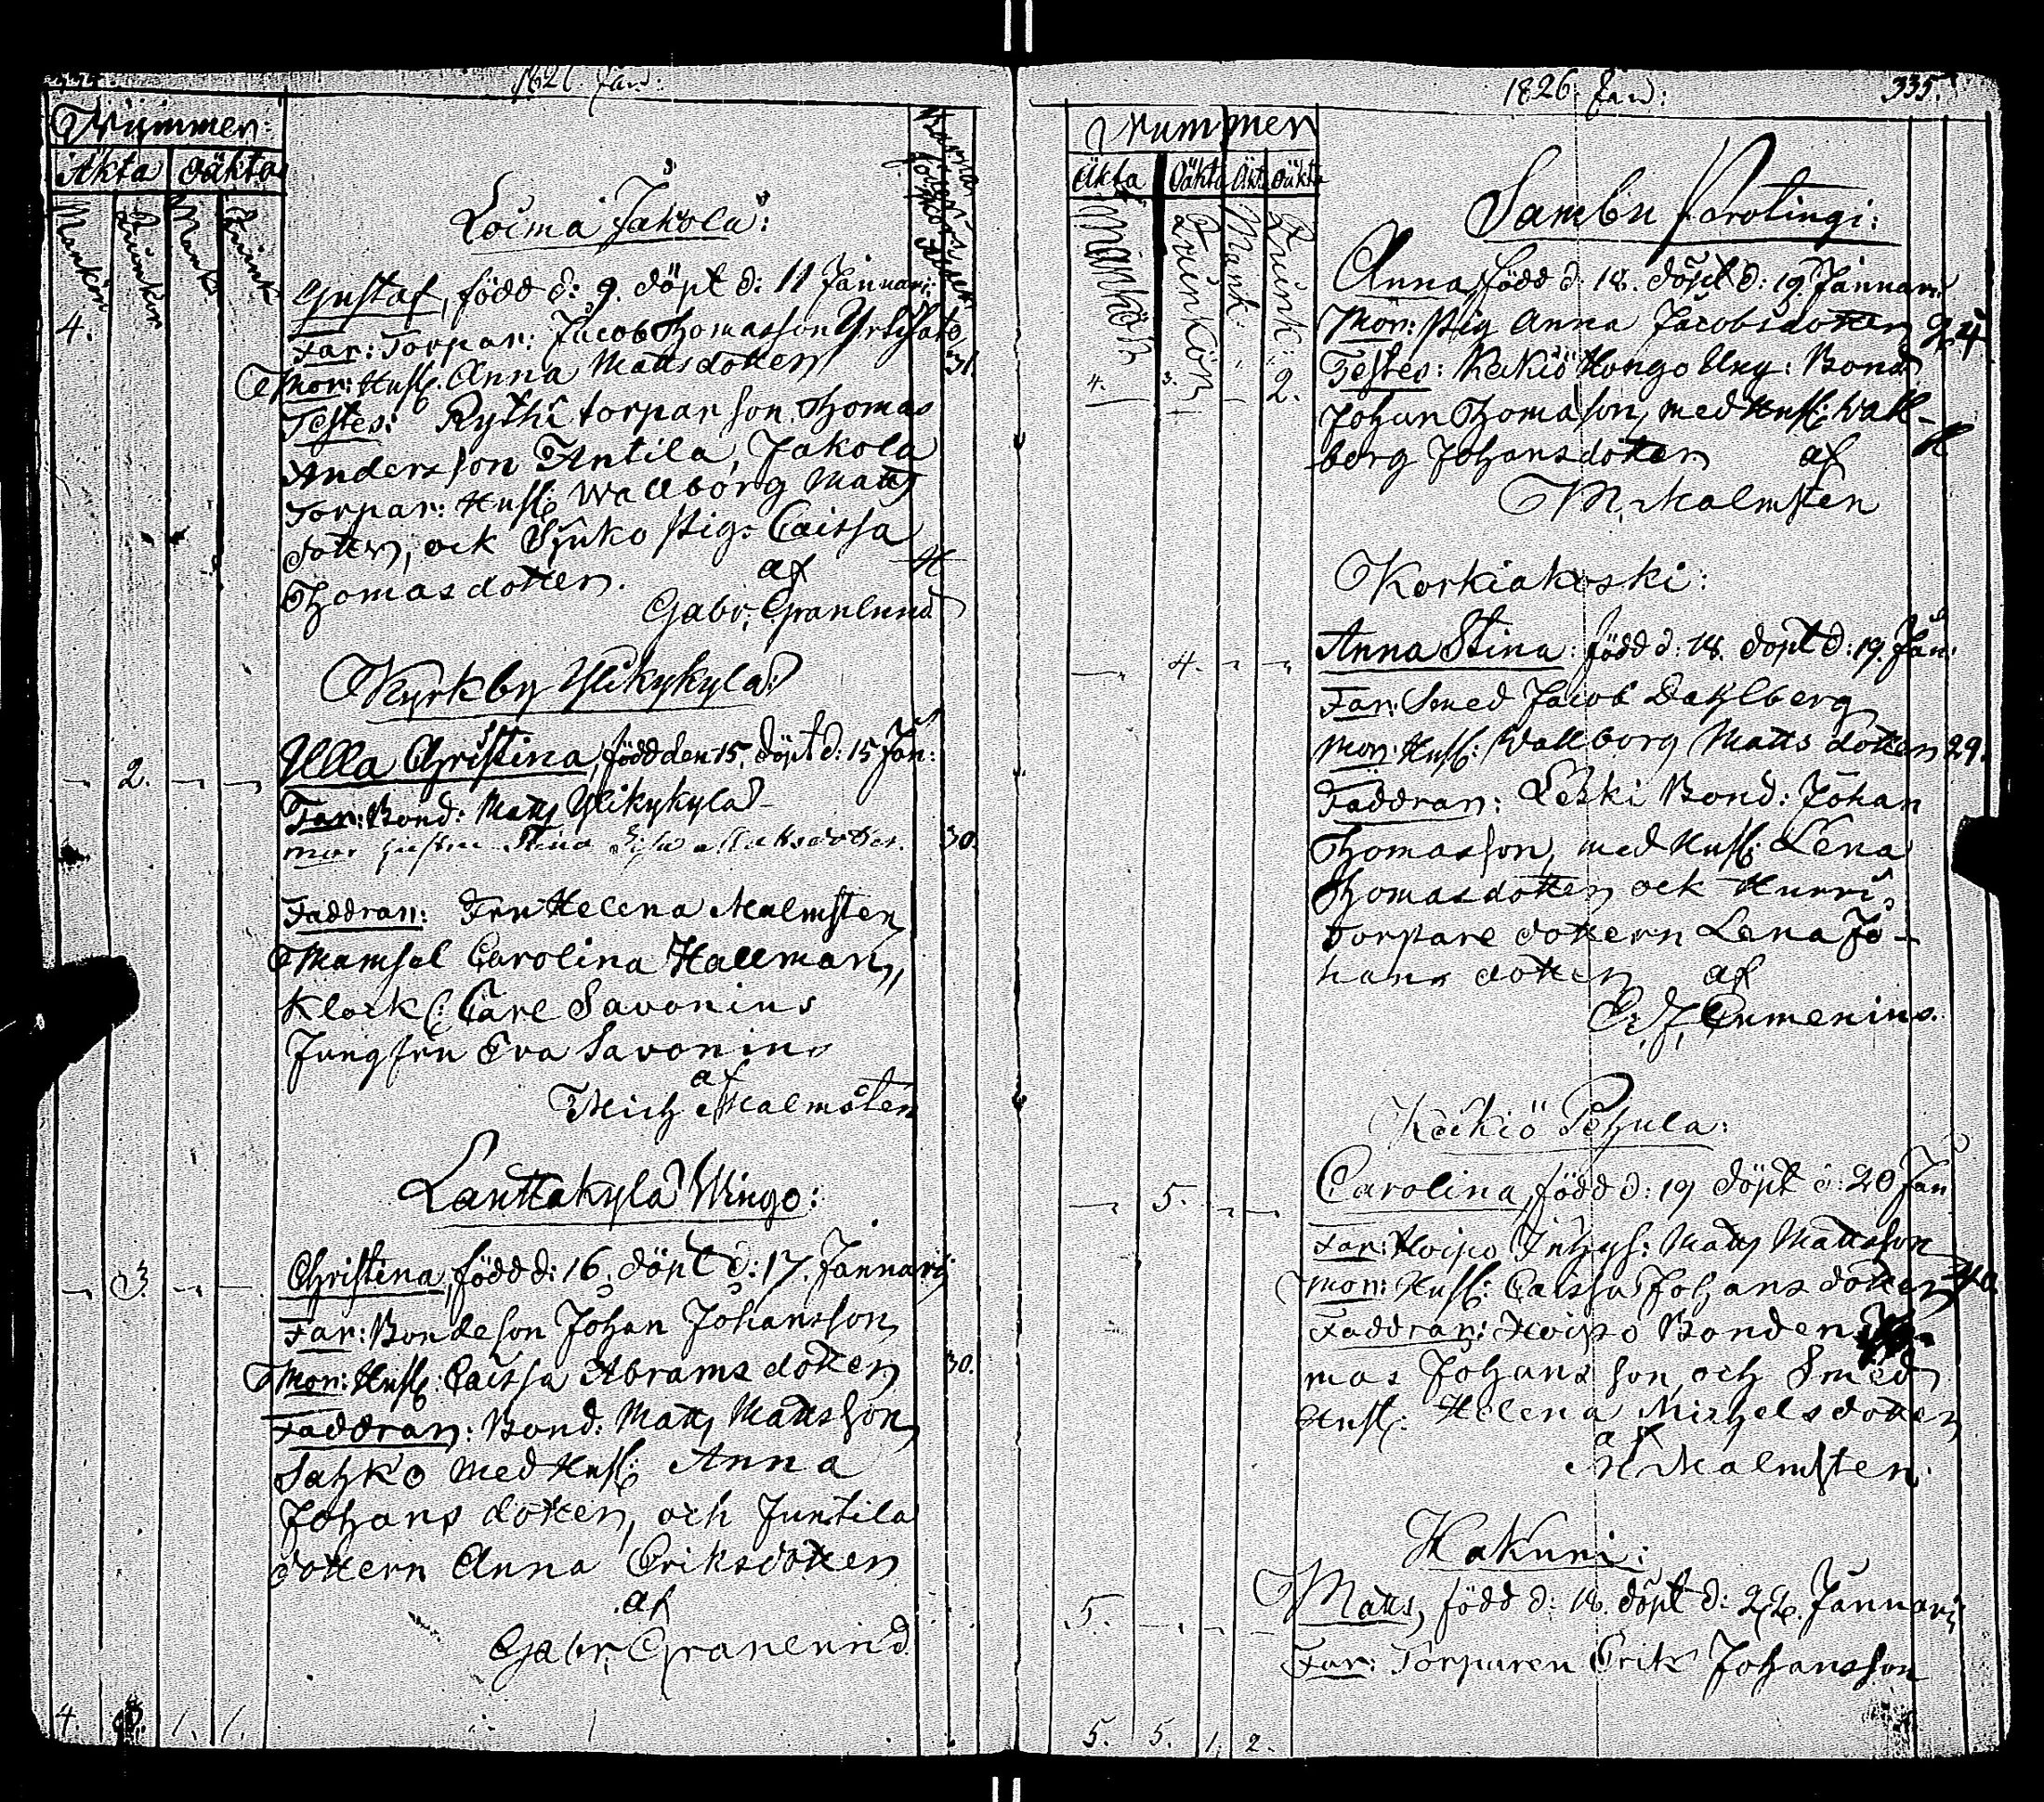 1826. Jan:
Nummer:
Äkta Oäkta
Mankön
Quinkön
Mank:
Quink:
Loima Jakola:
Gustaf, född d: 9. döpt d: 11 Januari:
4.
Far: Torpar: Jacob Thomasson
Mor: Hust: Anna Mattsdotter 31.
Testes: Rythi torpar son Thomas
Andersson Antila, Jakola
Torpar: Hust: Wallborg Matts
dotter, ock Pig: Caissa
Thomasdotter. af
Gabr: Granlund
Kyrkby Ylikykylä:
Ulla Christina, född den 15. döpt d: 15 Jan:
2.
Far: Bond: Matts Ylikykylä
mor hustru Stina Mattsdotter. 30.
Faddrar: Fru Helena Malmsten
Mamsel Carolina Hallman,
Klock: Carl Savonius
Jungfru Eva Savonius
af
Mich Malmsten
Lauttakylä Wingo:
Christina, född d: 16. döpt d: 17. Januarij
3.
Far: Bondeson Johan Johansson
Mor: Hust: Caissa Abrams dotter 30.
Faddrar: Bond: Matts Mattsson
Sahko med Hust: Anna
Johans dotter, och Juntila
dottern Anna Eriksdotter
af
Gabr: Granlund
4. 3. 1. 1.
1826. Jan: 335.
Nummer
Äkta Oäkta Äkt Oäkt
Mankön
Quinkön
Mank:
Quink:
Sambu Parolingi:
Anna, född d: 18. döpt d: 19. Januari
Mor: Pig Anna Jacobsdotter 24
4. 3. 2.
Testes: Keikiö Hongo Ung: Bond:
Johan Thomasson, med Hust: Wall-
borg Johansdotter af
M. Malmsten
Korkiakoski:
Anna Stina: född d: 18. döpt d: 19. Jan:
4.
Far: Smed Jacob Dahlberg
Mor: Hust: Wallborg Matts dotter 29.
Faddrar: Leski Bond: Johan
Thomasson, med Hust: Lena
Thomasdotter ock Hurri
torpare dottern Lena Jo-
hans dotter af
C. J. Cumenius.
Keikiö Pehula:
Carolina, född d: 19 döpt d: 20 Jan
5.
Far: Hoipo Inhys: Matts Mattsson
Mor: Hust: Caissa Johans dotter 40.
Faddrar: Hoipo Bonden
mas Johans son, och Smed
Hust: Helena Michelsdotter
af
M. Malmsten.
Hakuni:
Matts, född d: 18. döpt d: 22. Januarij
5.
Far: Torparen Erik Johansson
5. 5. 1. 2.